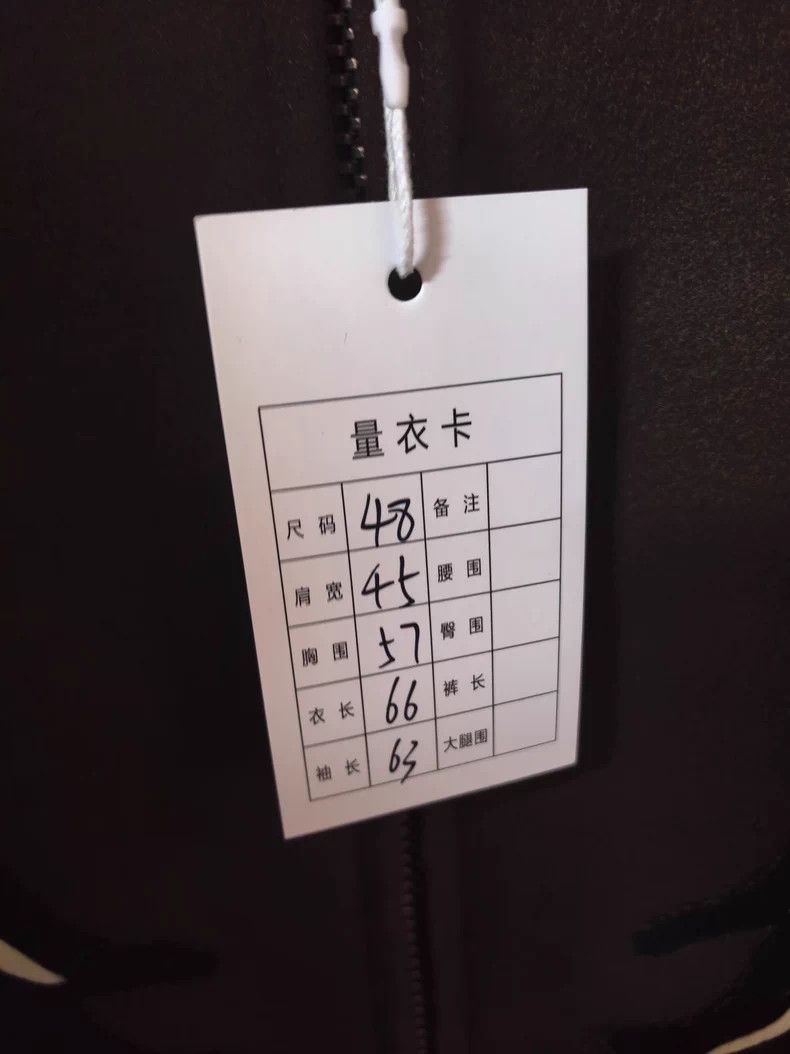 量衣卡
尺码 48 备注
肩宽 45 腰围
胸围 57 臀围
衣长 66 裤长
袖长 63 大腿围